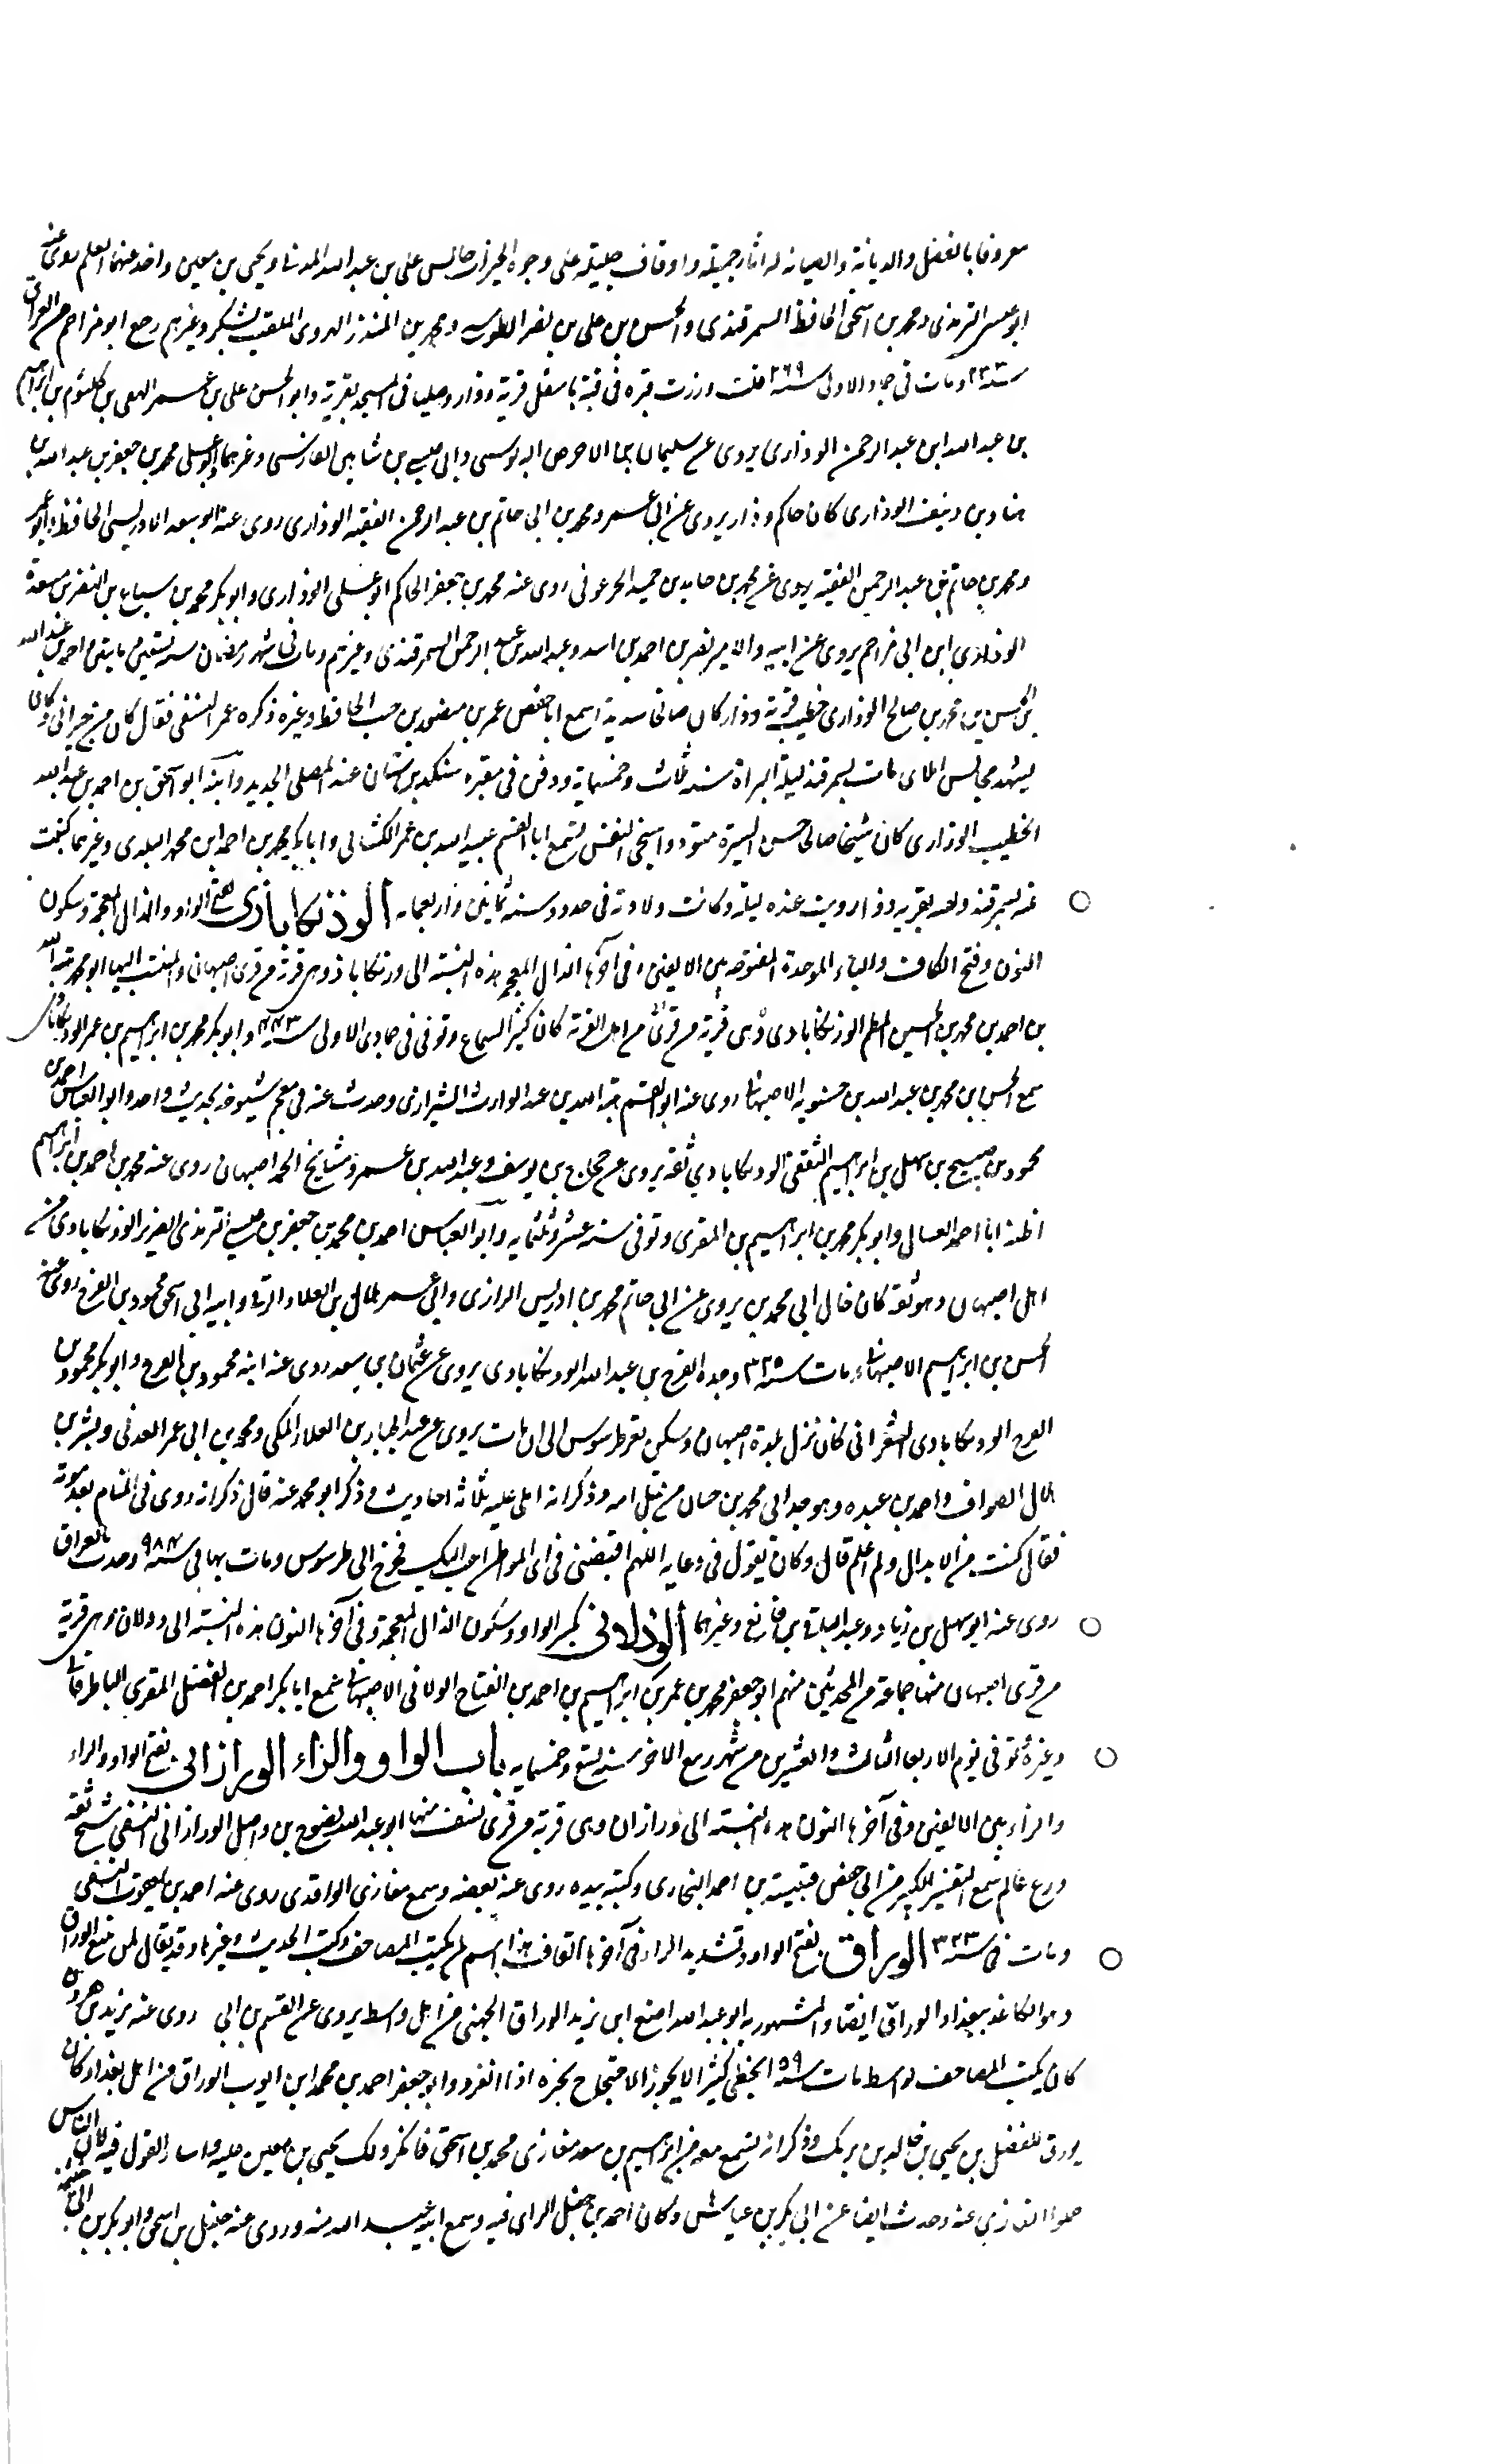 معروفا بالفضل والديانة والصيانه له اثار جميلة واوقاف جليلة على وجوه الخيرات جالس على بن عبد الله المدينى ويحيى بن معين واخذ عنهما العلم روى عنه
ابو عيسى الترمذى ومحمد بن اسحق الحافظ السمرقندى والحسن بن على بن نصر الطوسى ومحمد بن المنذر الهروى الملقب بشكر وغيرهم رجع ابو مزاحم من العراق
سنة ٢٣٣ ومات فى جماد الاولى سنة ٢٦٩ قلت وزرت قبره فى قبة باسفل قرية وذار وصلينا فى المسجد بقريته وابو الحسن على بن عمر بن كلثوم بن ابراهيم
بن عبد الله ابن عبد الرحمن الوذارى يروى عن سليمان بن الاحوص الدبوسى وابى عيسى بن شاهين الفارسى وغيرهما وابو على محمد بن جعفر بن عبد الله بن
الوذارى كان حاكم وذار يروى عن ابى عمرو محمد بن ابى حاتم بن عبد الرحمن الفقيه الوذارى روى عنه ابو سعد الادريسى الحافظ وابو عمر
ومحمد بن حاتم بن عبد الرحمن الفقيه يروى عن محمد بن حامد بن حميد روى عنه محمد بن جعفر الحاكم ابو على الوذارى وابو بكر محمد بن سباع بن النضر بن مسعدة
الوذارى ابن ابى مزاحم يروى عن ابيه والامير نصر بن احمد بن اسد وعبد الله بن عبد الرحمن السمرقندى وغيرهم ومات فى شهر رمضان سنة احمد بن عبد الله
بن الحسن بن محمد بن صالح الوذارى خطيب قرية وذار كان صالحا سمع ابا حفص عمر بن منصور بن خنب الحافظ وغيره ذكره عمر النسفى فقال كان من جيرانى وكان
يشهد مجالس املاى مات بسمرقند ليلة البراة سنة ثلاث وخمسماية ودفن فى مقبرة عند المصلى الجديد وابنه ابو اسحق بن احمد بن عبد الله
الخطيب الوذارى كان شيخا صالحا حسن السيرة متوددا سخى النفس سمع ابا القسم عبيد الله بن عمر الكشانى وابا بكر محمد بن احمد ابن محمد البلدى وغيرهما كتبت
عنه بسمرقند بقرية وذار وبت عنده ليلة وكانت ولادته فى حدود سنة ثمانين واربعمايه الوذنكاباذى بفتح الواو والذال المعجمة وسكون
النون وفتح الكاف والباء الموحدة المفتوحه بين الالفين وفى آخرها الذال المعجمه هذه النسبة الى وذنكاباذ وهى قرية من قرى اصبهان والمنتسب اليها ابو محمد عبد الله
بن احمد بن محمد بن الحسين المعلم الوذنكاباذى من اهل القرية كان كثير السماع وتوفى فى جمادى الاولى سنة ٤٤٣ وابو بكر محمد بن ابراهيم بن عمر الوذنكاباذى
سمع الحسن بن محمد بن عبد الله بن حسنويه الاصبهانى روى عنه ابو القسم هبة الله بن عبد الوارث الشيرازى وحدث عنه فى معجم شيوخه بحديث واحد وابو العباس احمد بن
محمود بن صبيح بن سهل بن ابراهيم الثقفى الوذنكاباذى ثقة يروى عن حجاج بن يوسف وعبد الله بن عمرو مشايخ اصبهان روى عنه محمد بن احمد بن ابراهيم
اظنه ابا احمد العسال وابو بكر محمد بن ابراهيم بن المقرى وتوفى سنة عشر وثلثمايه وابو العباس احمد بن محمد بن جعفر بن عيسى الترمذى الضرير الوذنكاباذى من
اهل اصبهان وهو ثقة كان خال ابى محمد بن يروى عن ابى حاتم محمد بن ادريس الرازى وابى عمر هلال بن العلاء الرقى وابيه ابى اسحق محمود بن الفرج روى عنه
الحسن بن ابراهيم الاصبهانى مات سنة ٣٢٥ وجده الفرج بن عبد الله الوذنكاباذى يروى عن عثمان بن سعد روى عنه ابنه محمود بن الفرج وابو بكر محمود بن
الفرج الوذنكاباذى كان نزل بمدة اصبهان وسكن بثغر طرسوس الى ان مات يروى عن عبد الجبار بن العلاء المكى ومحمد بن ابى عمر العدنى وبشر بن
هلال الصواف واحمد بن عبده وهو جد ابى محمد بن حيان من قبل امه وذكر انه املى عليه ثلاثه احاديث وذكر ابو محمد عنه قال ذكر انه روى فى المنام بعد موته
فقال كنت من الابدال ولم اعلم قال وكان يقول فى دعايه اللهم اقبضنى فى اى المواطن احب اليك فخرج الى طرسوس ومات بها فى سنة وحدث بالعراق
روى عنه ابو سهل بن زياد وعبد الباقى بن قانع وغيرهما الوذلانى بكسر الواو وسكون الذال المعجمة وفى آخرها النون هذه النسبة الى وذلان وهى قرية
من قرى اصبهان منها جماعة من المحدثين منهم ابو جعفر محمد بن عمر بن ابراهيم بن احمد بن الفتاح الوذلانى الاصبهانى سمع ابا بكر احمد بن الفضل المقرى الباطرقانى
وغيره توفى يوم الاربعا الثالث والعشرين من شهر ربيع الاخر سنة تسع وخمسمايه باب الواو والراء الورازانى بفتح الواو والراء
والزاء بين الالفين وفى آخرها النون هذه النسبة الى ورازان وهى قرية من قرى نسف منها ابو عبد الله نصوح بن واصل الورازانى النسفى شيخ ثقة
ورع عالم سمع التفسير الكبير من ابى حفص قتيبة بن احمد البخارى وكتبه بيده روى عنه بعضه وسمع مغازى الواقدى روى عنه احمد بن يعقوب النسفى
ومات فى سنة ٣٢٣ الوراق بفتح الواو وتشديد الراء فى آخرها القاف هذا اسم لمن يكتب المصاحف وكتب الحديث وغيرها وقد يقال لمن يبيع الوراق
وهو الكاغد ببغداد الوراق ايضا والمشهور به ابو عبد الله اصبغ ابن زيد الوراق الجهنى من اهل واسط يروى عن القسم بن ابى روى عنه يزيد بن هرون
كان يكتب المصاحف بواسط مات سنة ١٥٩ يخطى كثيرا لا يجوز الاحتجاج بخبره اذا انفرد وابو جعفر احمد بن محمد ابن ايوب الوراق من اهل بغداد كان
يورق للفضل بن يحيى بن خالد بن برمك وذكر انه سمع معه من ابراهيم بن سعد مغازى محمد بن اسحق فانكر ذلك يحيى بن معين عليه واساء القول فيه الا ان الناس
حملوا المغازى عنه وحدث ايضا عن ابى بكر بن عياش وكان احمد بن حنبل الراى فيه وسمع ابنه عبد الله منه وروى عنه حنبل بن اسحق وابو بكر بن ابى خيثمة